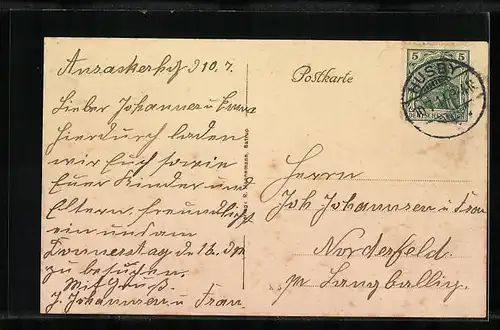 Ansackerhof d 10. 7.
Lieber Johannes u Frau
Hierdurch laden
wir Euch sowie
Euer Kinder und
Eltern freundlichst
ein uns am
Donnerstag d 12. d M
zu besuchen.
Mit Gruß.
J. Johannsen u Frau.
Postkarte
5 5
DEUTSCHES REICH
HUSBY
Herrn
Joh Johannsen u Frau
Norderfeld.
pr Langballig.